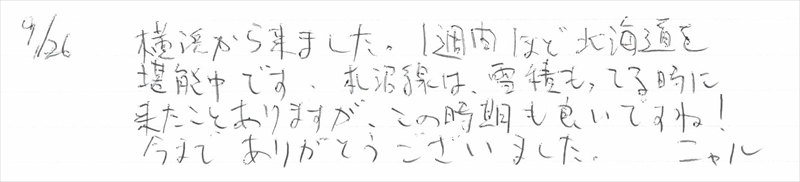 9/26 横浜から来ました。1週間ほど北海道を
堪能中です。札沼線は、雪積もってる時に
来たことありますが、この時期も良いですね!
今までありがとうございました。 ニャル